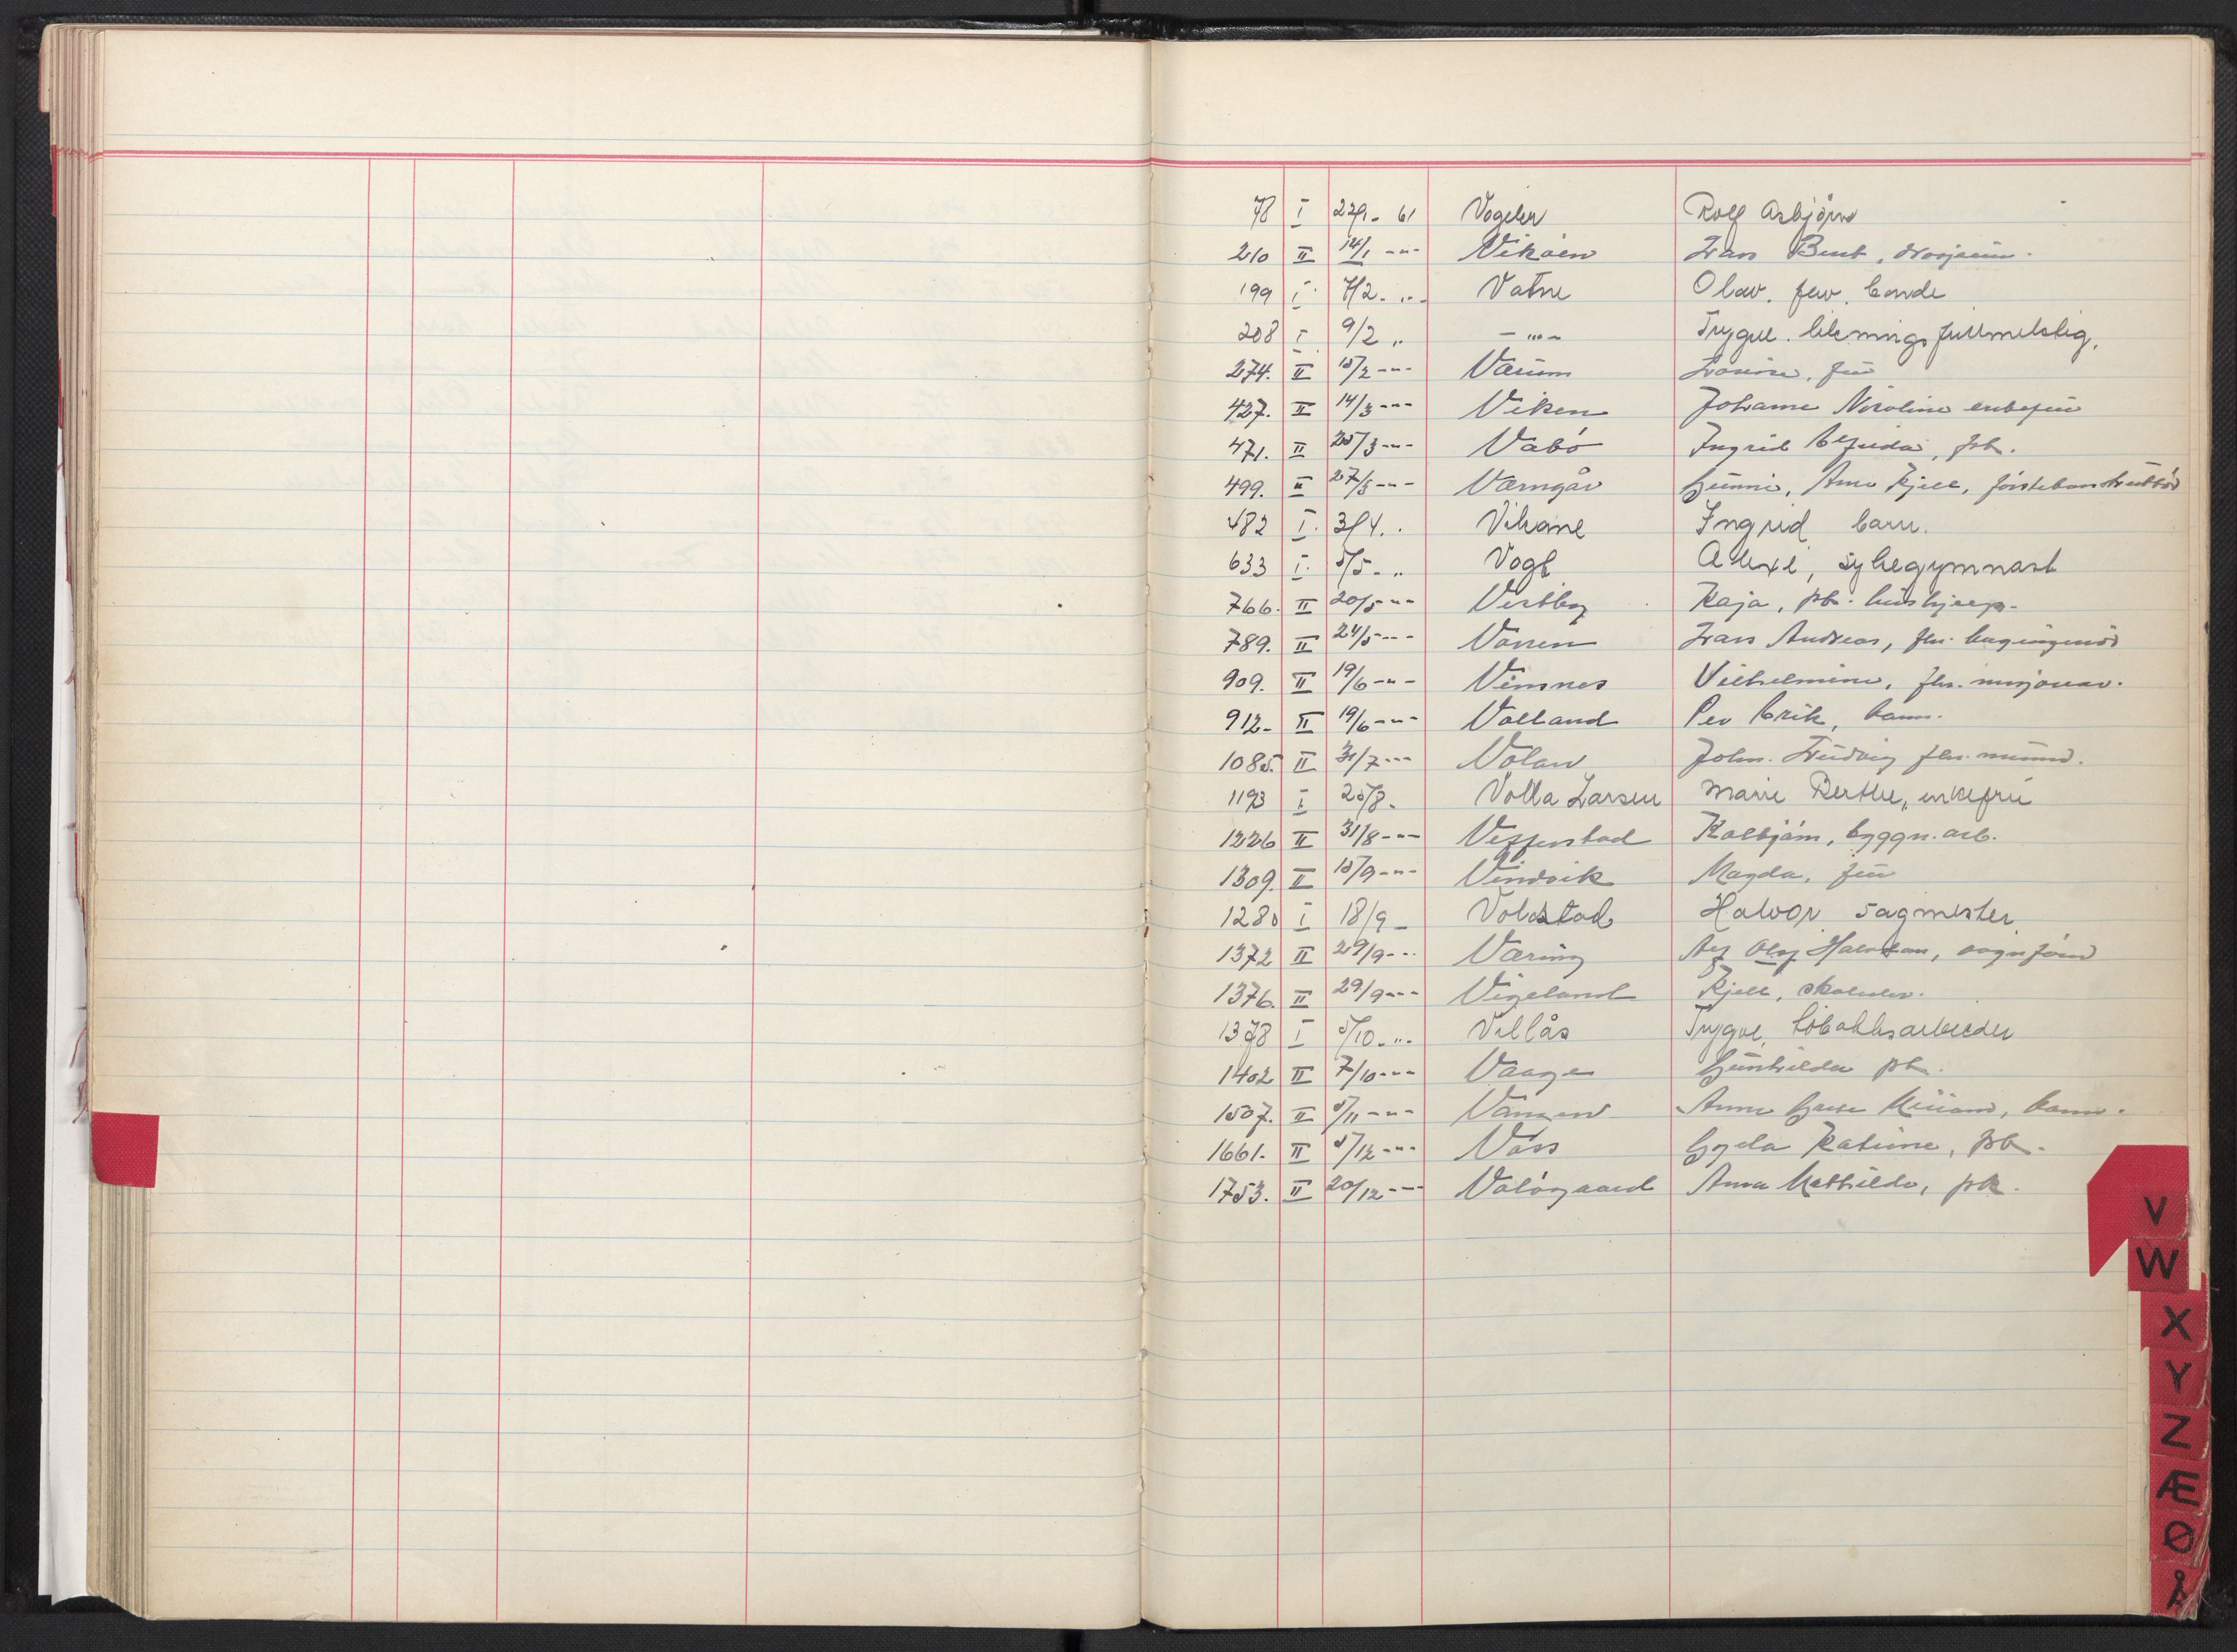 78 I 22/1 - 61 Vogeler Rolf Asbjørn
210 II 14/1 -"- Vikøen Hans Bent,
199 I 7/2 - " - Vatne Olav, fhv. bonde
208 I 9/2 " -"- Trygve. likningsfullmektig,
274. II 15/2 -"- Værum fru
427. II 14/3 -"- Viken Johanne Nicoline enkefru
471. II 25/3 -"- Vabø Ingrid Elfrida, frk.
499. II 27/3 -"- Værngår Arne Kjell, førstekonstruktør
482 I. 3/4. . Vikane Ingrid barn.
633 I. 5/5 - " Vogt Alexe, sykegymnast
766. II 20/5 -"- Vestby Kaja, frk. hushjelp.
789. II 24/5 -"- Vorren Hans Andreas, fhv.
909. II 19/6 -"- Vimnes Vilhelmine, fhv. misjonær.
912- II 19/6 -"- Volland Per Erik, barn.
1085. II 31/7 -"- Volan John. Ludvig fhv. murm.
1193 I 25/8. Volla Larsen Marie Berthe, enkefru
1226 II 31/8 -"- Veggerstad Kolbjørn, byggn. arb.
1309. II 15/9 -"- Vindvik Magda, fru
1280 I 18/9 - Voldstad Halvor sagmester
1372 II 29/9 -"- Væring Alf Olaf Halvdan,
1376. II 29/9 -"- Vigeland Kjell, skoleelev.
1378 I 5/10 - " - Villås Trygve, tobakksarbeider
1402 II 7/10 -"- Vaage Gunhilda frk.
1507. II 5/11 -"- Vangen Anne Grete barn.
1661. II 5/12 -"- Voss Gyda Katrine, frk.
1753. II 20/12 -"- Valøgaard Anna Mathilde, frk.
V
W
X
Y
Z
Æ
Ø
Å